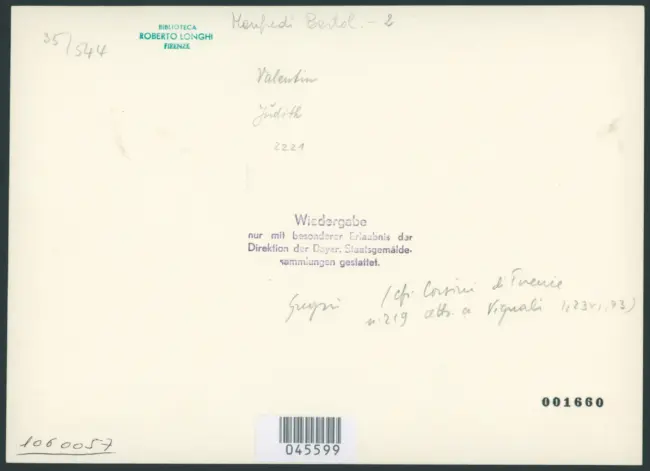 35/544
BIBLIOTECA
ROBERTO LONGHI
FIRENZE
Manfredi Bartol. - 2
Valentin
Judith
2221
Wiedergabe
nur mit besonderer Erlaubnis der
Direktion der Bayer. Staatsgemälde-
sammlungen gestattet.
(cfr. Corsini di Firenze
n. 219 attr. a Vignali
001660
1060057
045599